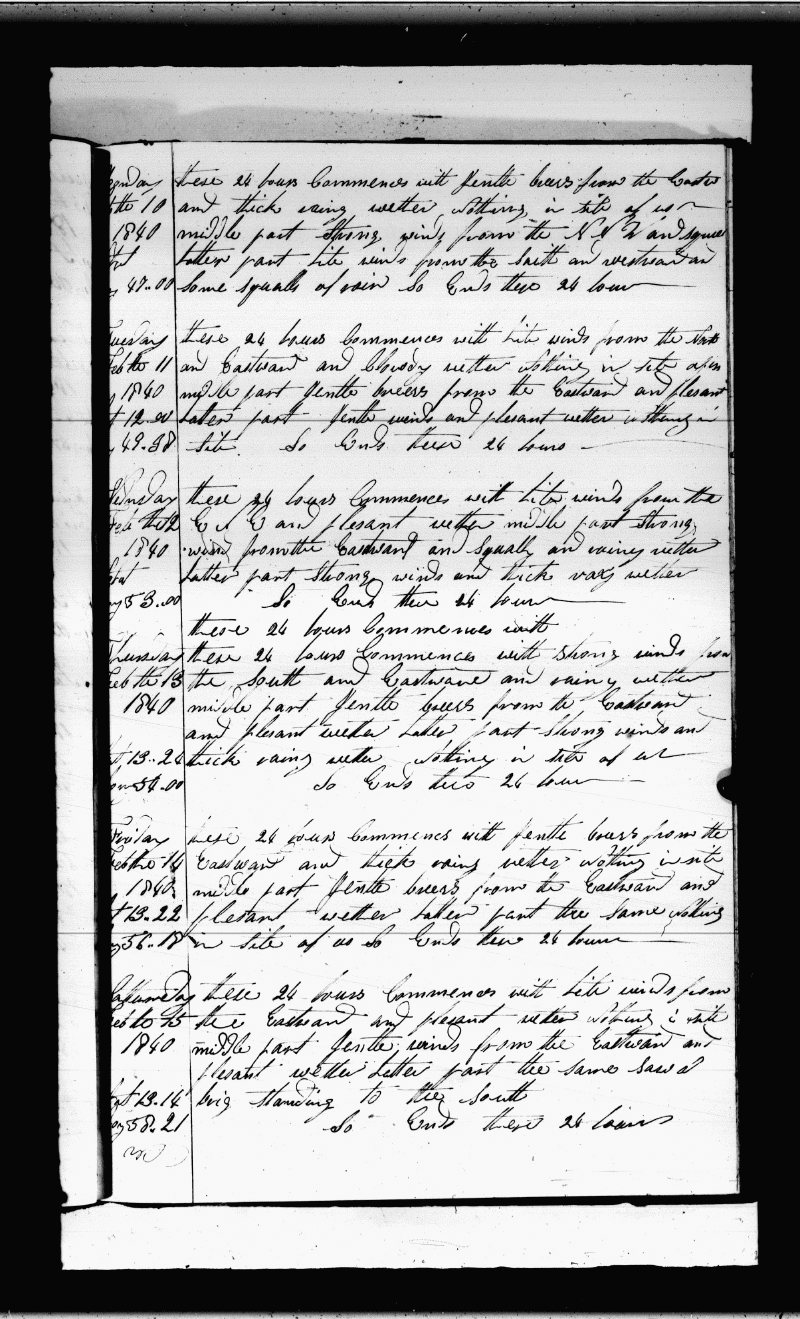 Monday these 24 hours Commences with Gentle breers from the Easter
Feb the 10 and thick rainy wether Nothing in site of us
1840 middle part Strong winds from the N N W and squale
Latter part Lite winds from the South and westward and
49..00 Some squalls of rain So Ends these 24 hours
Tuesday these 24 hours Commences with Lite winds from the North
Feb the 11 and Eastward and Cloudy wether Nothing in site of us
1840 middle part Gentle breers from the Eastward and plesant
12.00 Latter part Gentle winds and plesant wether nothing in
49.38 Site So Ends these 24 hours
Wensday these 24 hours Commences with Lite winds from the
Feb the 12 E N E and plesant wether middle part Strong
1840 wind from the Eastward and Squally and rainy wether
Latter part Strong winds and thick rany wether
53..00 So Ends these 24 hours
these 24 hours Commences with
Thursday these 24 hours Commences with Strong winds from
Feb the 13 the South and Eastward and rainy wether
1840 middle part Gentle breers from the Eastward
and plesant wether Latter part Strong winds and
13..24 thick rainy wether Nothing in site of us
54.00 So Ends these 24 hours
Friday these 24 hours Commences with Gentle breers from the
Feb the 14 Eastward and thick rainy wether Nothing in site
1840 middle part Gentle breers from the Eastward and
13.22 plesant wether Latter part the Same Nothing
56.18 in Site of us So Ends these 24 hours
Satturnday these 24 hours Commences with Lite winds from
Feb the 15 the Eastward and plesant wether Nothing in site
1840 middle part Gentle winds from the Eastward and
plesant wether Latter part the same Saw a
13.14 brig Standing to the South
58.21 So Ends these 24 hours